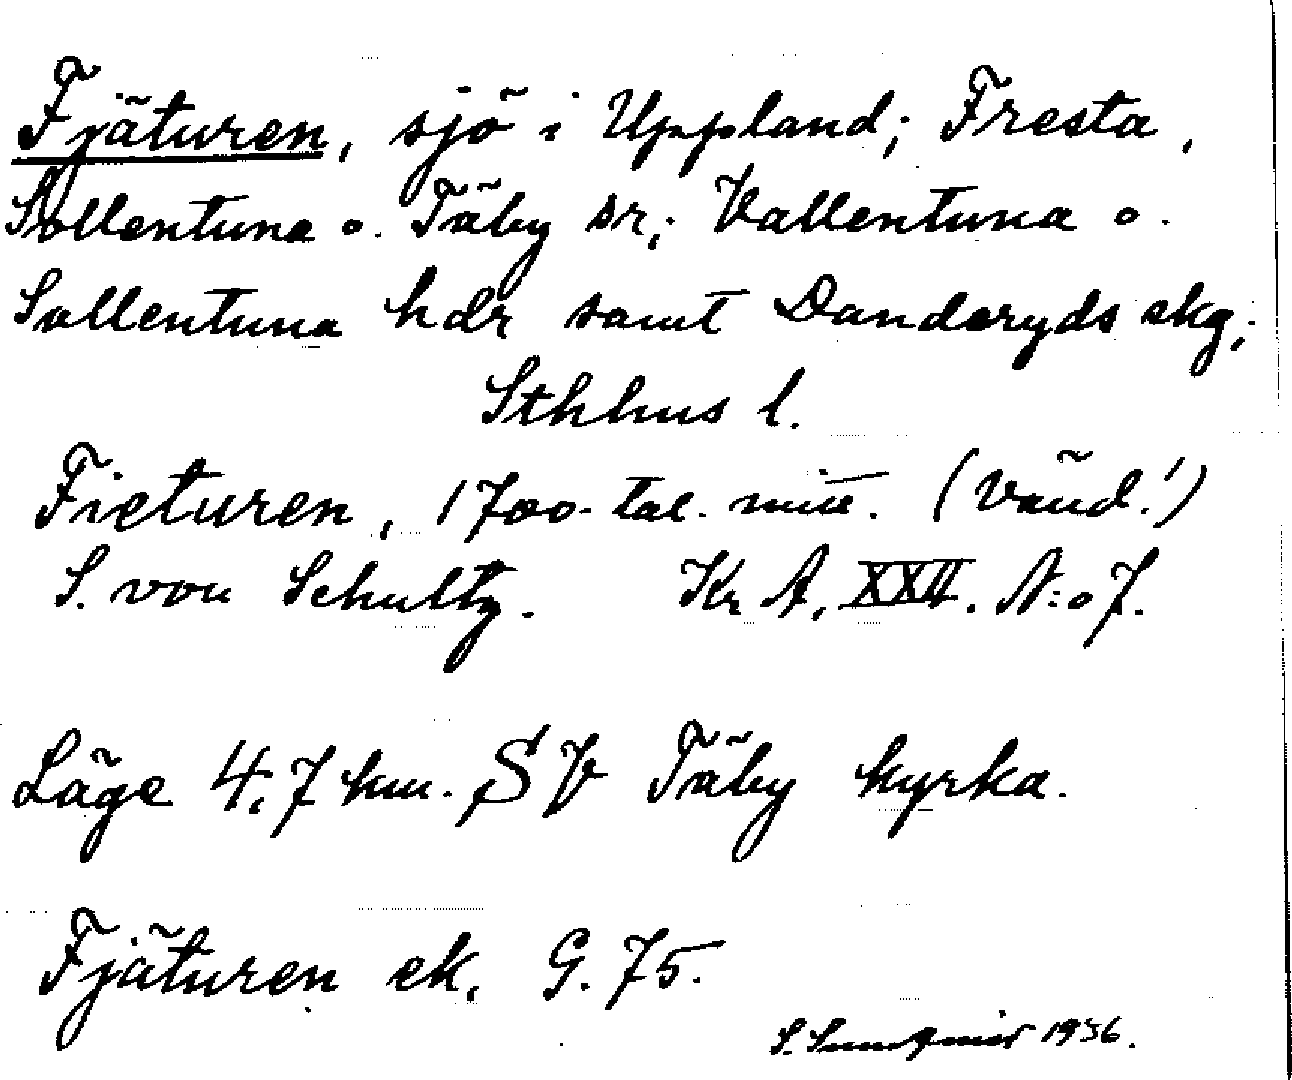 Fjäturen, sjö i Uppland; Fresta,
Sollentuna o. Täby sr; Vallentuna o.
Sollentuna hdr samt Danderyds skg;
Sthlms l.
Fieturen, 1700-tal. mitt. (Vänd!)
S. von Schultz. Kr A. XXII. N:o 7.
Läge 4,7 km. SV Täby kyrka.
Fjäturen ek. G. 75.
S. 1936.